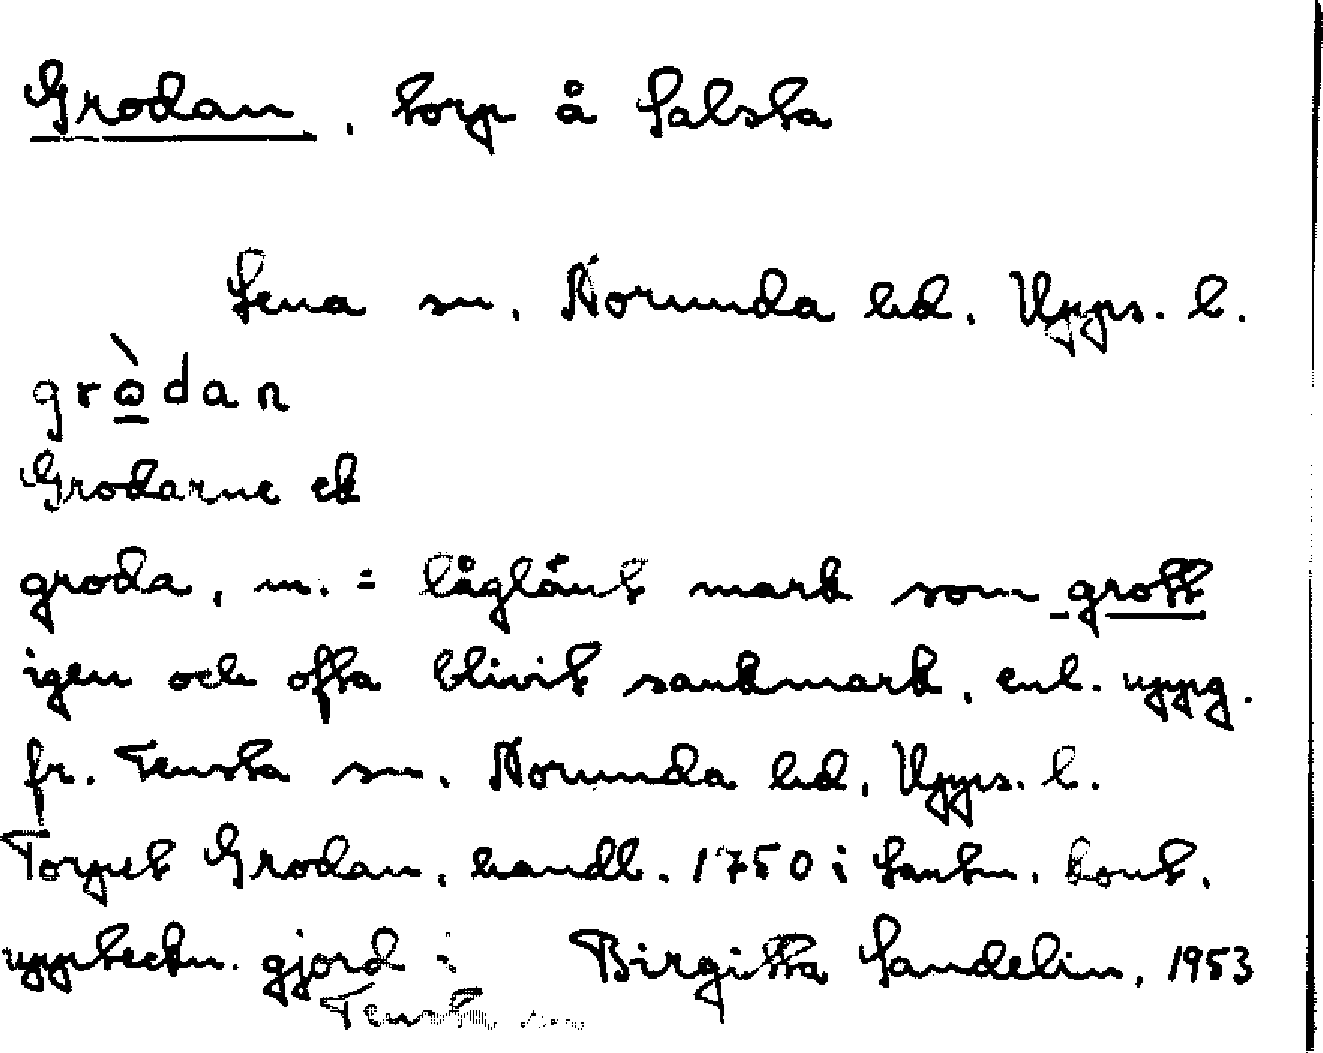 Grodan, torp å Salsta
Lena sn, Norunda hd, Upps. l.
gròdan
Grodarne ek
groda, m. = låglänt mark som grott
igen och ofta blivit sankmark, enl. uppg.
fr. Tensta sn, Norunda hd, Upps. l.
Torpet Grodan, handl. 1750 i Lantm. kont.
uppteckn. gjord i Birgitta Sandelin, 1953
Tensta sn